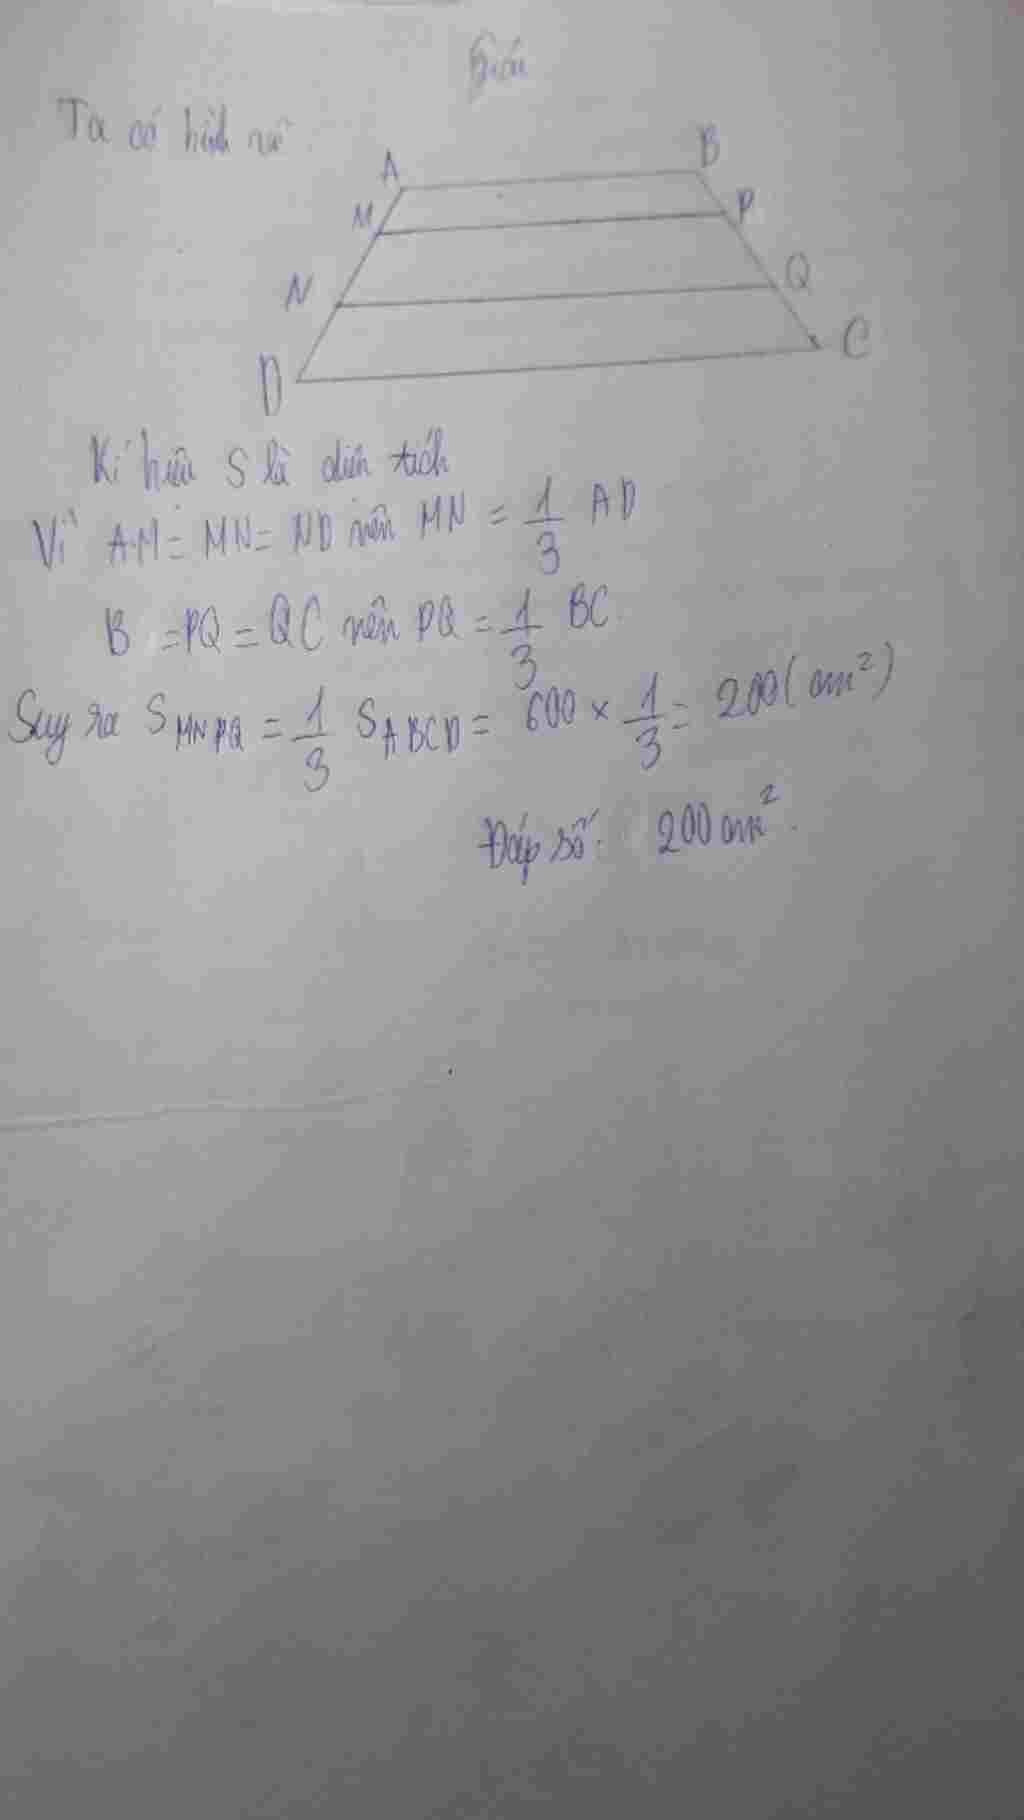 Giải
Ta có hình vẽ
A
B
M
P
N
Q
D
C
Kí hiệu S là diện tích
Vì AM = MN = ND nên MN = 1/3 AD
B = PQ = QC nên PQ = 1/3 BC
Suy ra S MNPQ = 1/3 S ABCD = 600 x 1/3 = 200 (cm²)
Đáp số: 200 cm².